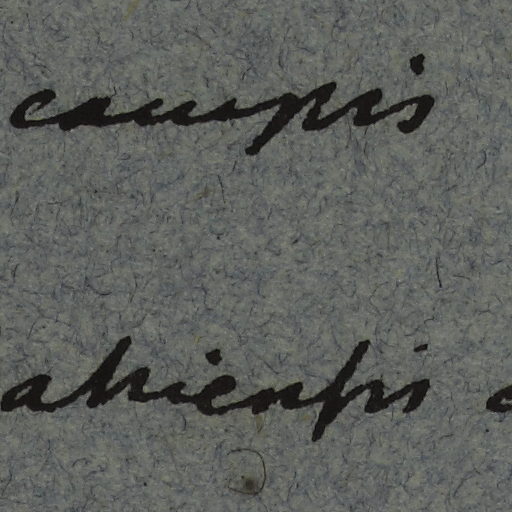 campis
ahienſis